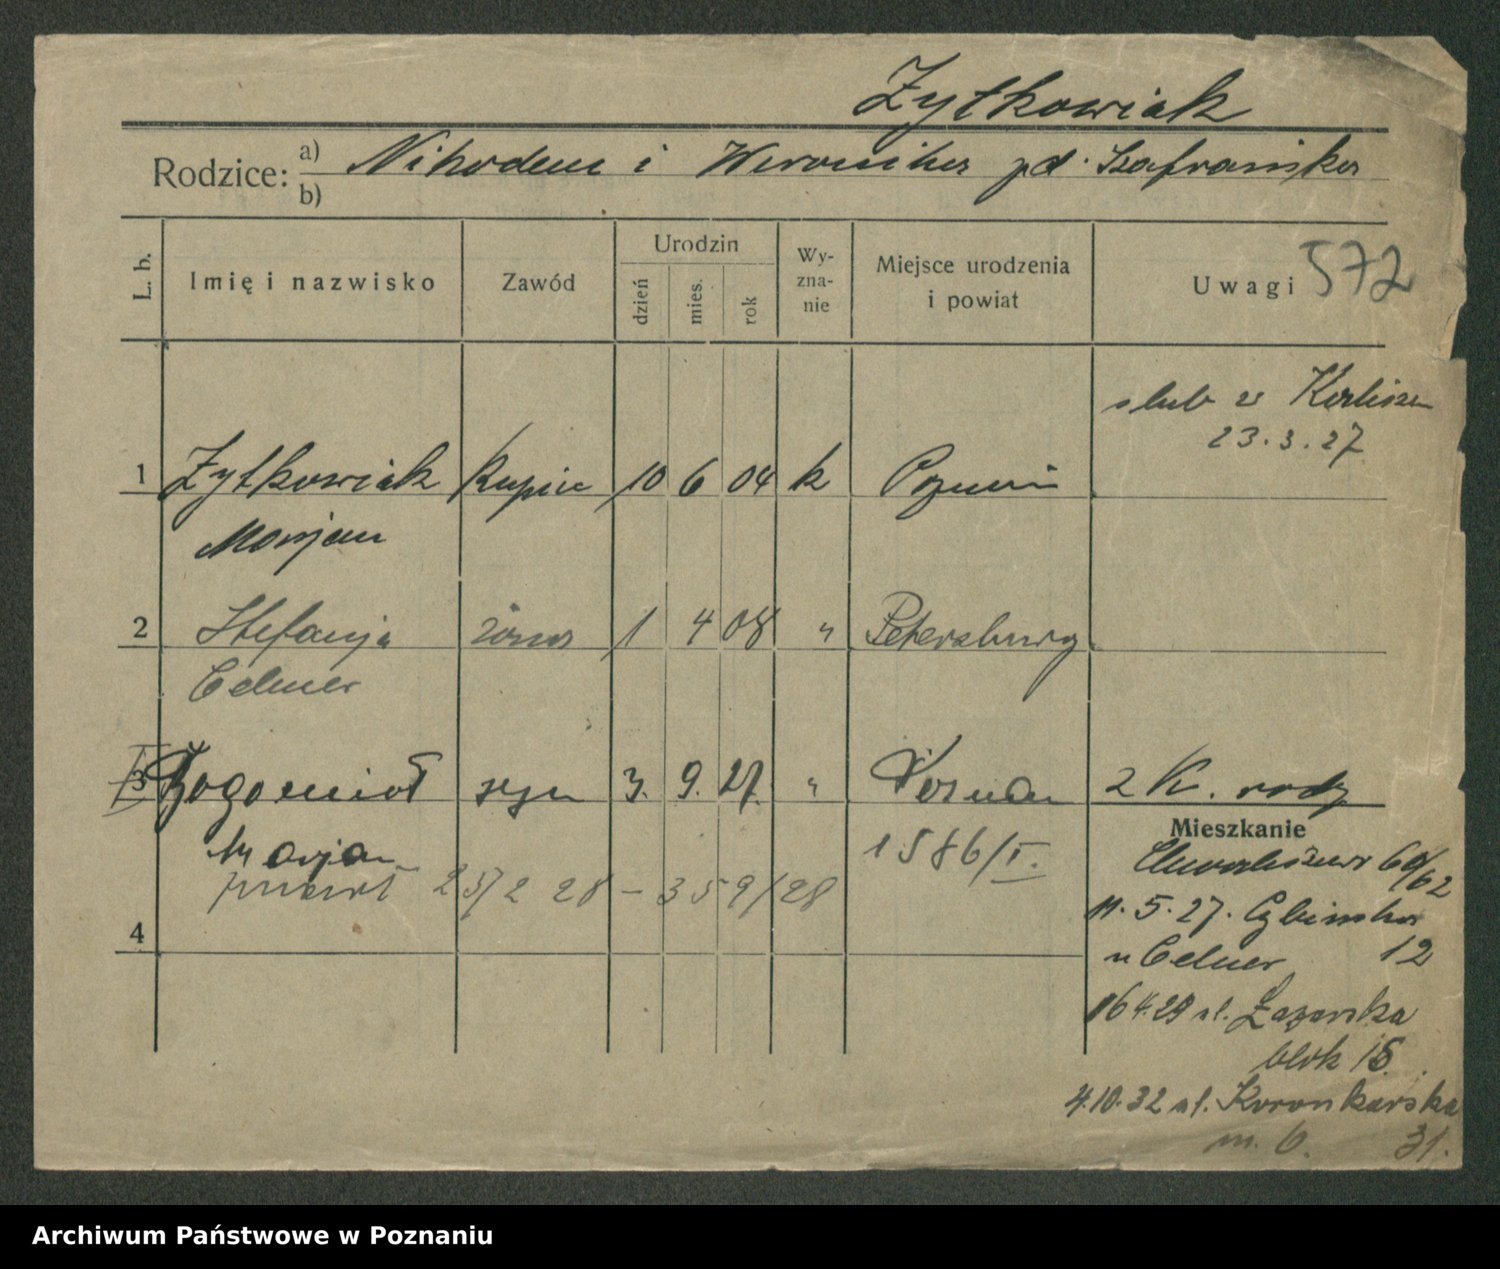 Żytkowiak
Rodzice: a) Nikodem i Weronika zd. Szafrańska
b)
L. b.
Imię i nazwisko
Zawód
Urodzin
dzień
mies.
rok
Wy-
zna-
nie
Miejsce urodzenia
i powiat
Uwagi 572
ślub w
23.3.27
1 Żytkowiak kupiec 10 6 04 k Poznań
Marjan
2 Stefanja żona 1 4 08 " Petersburg
Celmer
3 syn 3. 9. 27. " Poznań 2 K. rodz
Marjan 1586/I.
Mieszkanie
Chwaliszewo 60/62
zmarł 25/2 28 - 359/28
11.5.27. Cybińska
4
u Celmer 12
16 4.29 ul. Łazarska
blok 15.
4.10.32 ul. Koronkarska
m. 6. 31.
Archiwum Państwowe w Poznaniu